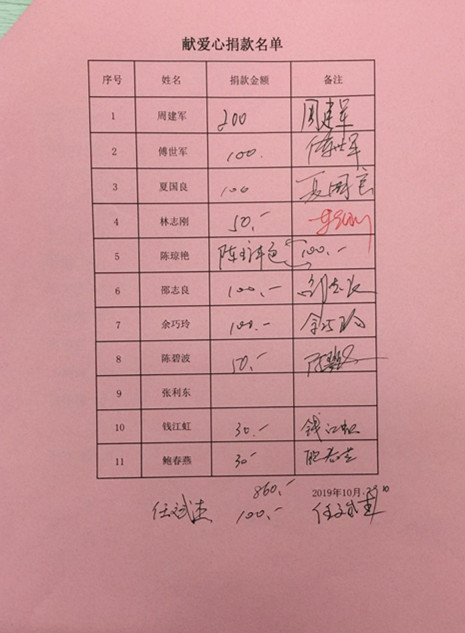 献爱心捐款名单
序号 姓名 捐款金额 备注
1 周建军 200 周建军
2 傅世军 100. 傅世军
3 夏国良 100 夏国良
4 林志刚 50.-
5 陈琼艳 陈琼艳 100.-
6 邵志良 100.- 邵志良
7 余巧玲 100.- 余巧玲
8 陈碧波 50.- 陈碧波
9 张利东
10 钱江虹 30.- 钱江虹
11 鲍春燕 30- 鲍春燕
860.- 2019年10月
任斌杰 100.- 任斌杰